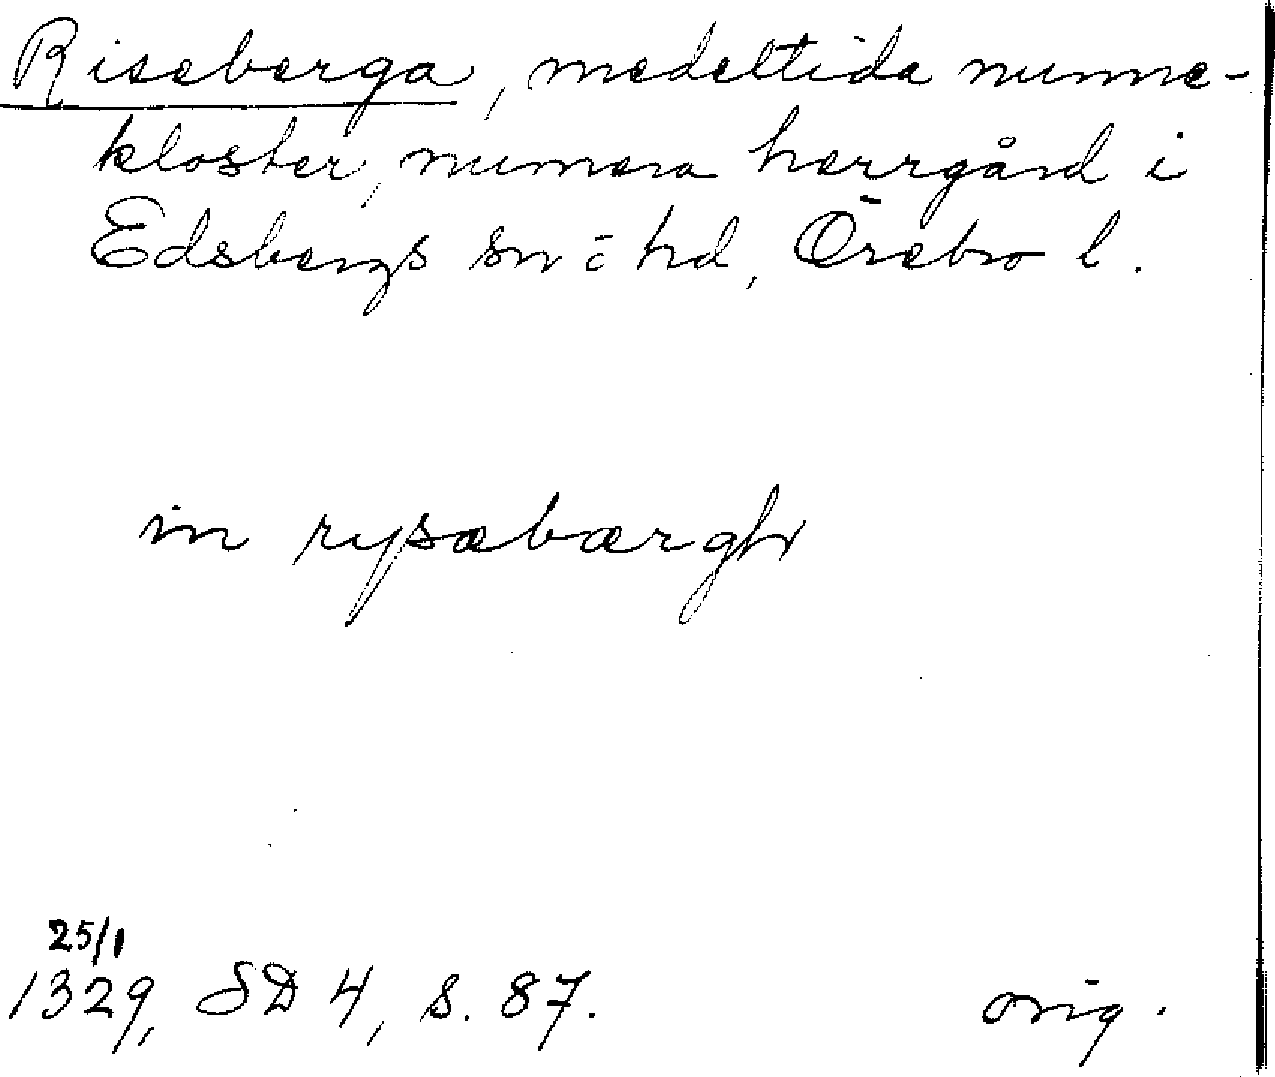 Riseberga, medeltida nunne-
kloster, numera herrgård i
Edsbergs sn o hd, Örebro l.
in rysæbærgh
25/1
1329, SD 4, s. 87.
orig.